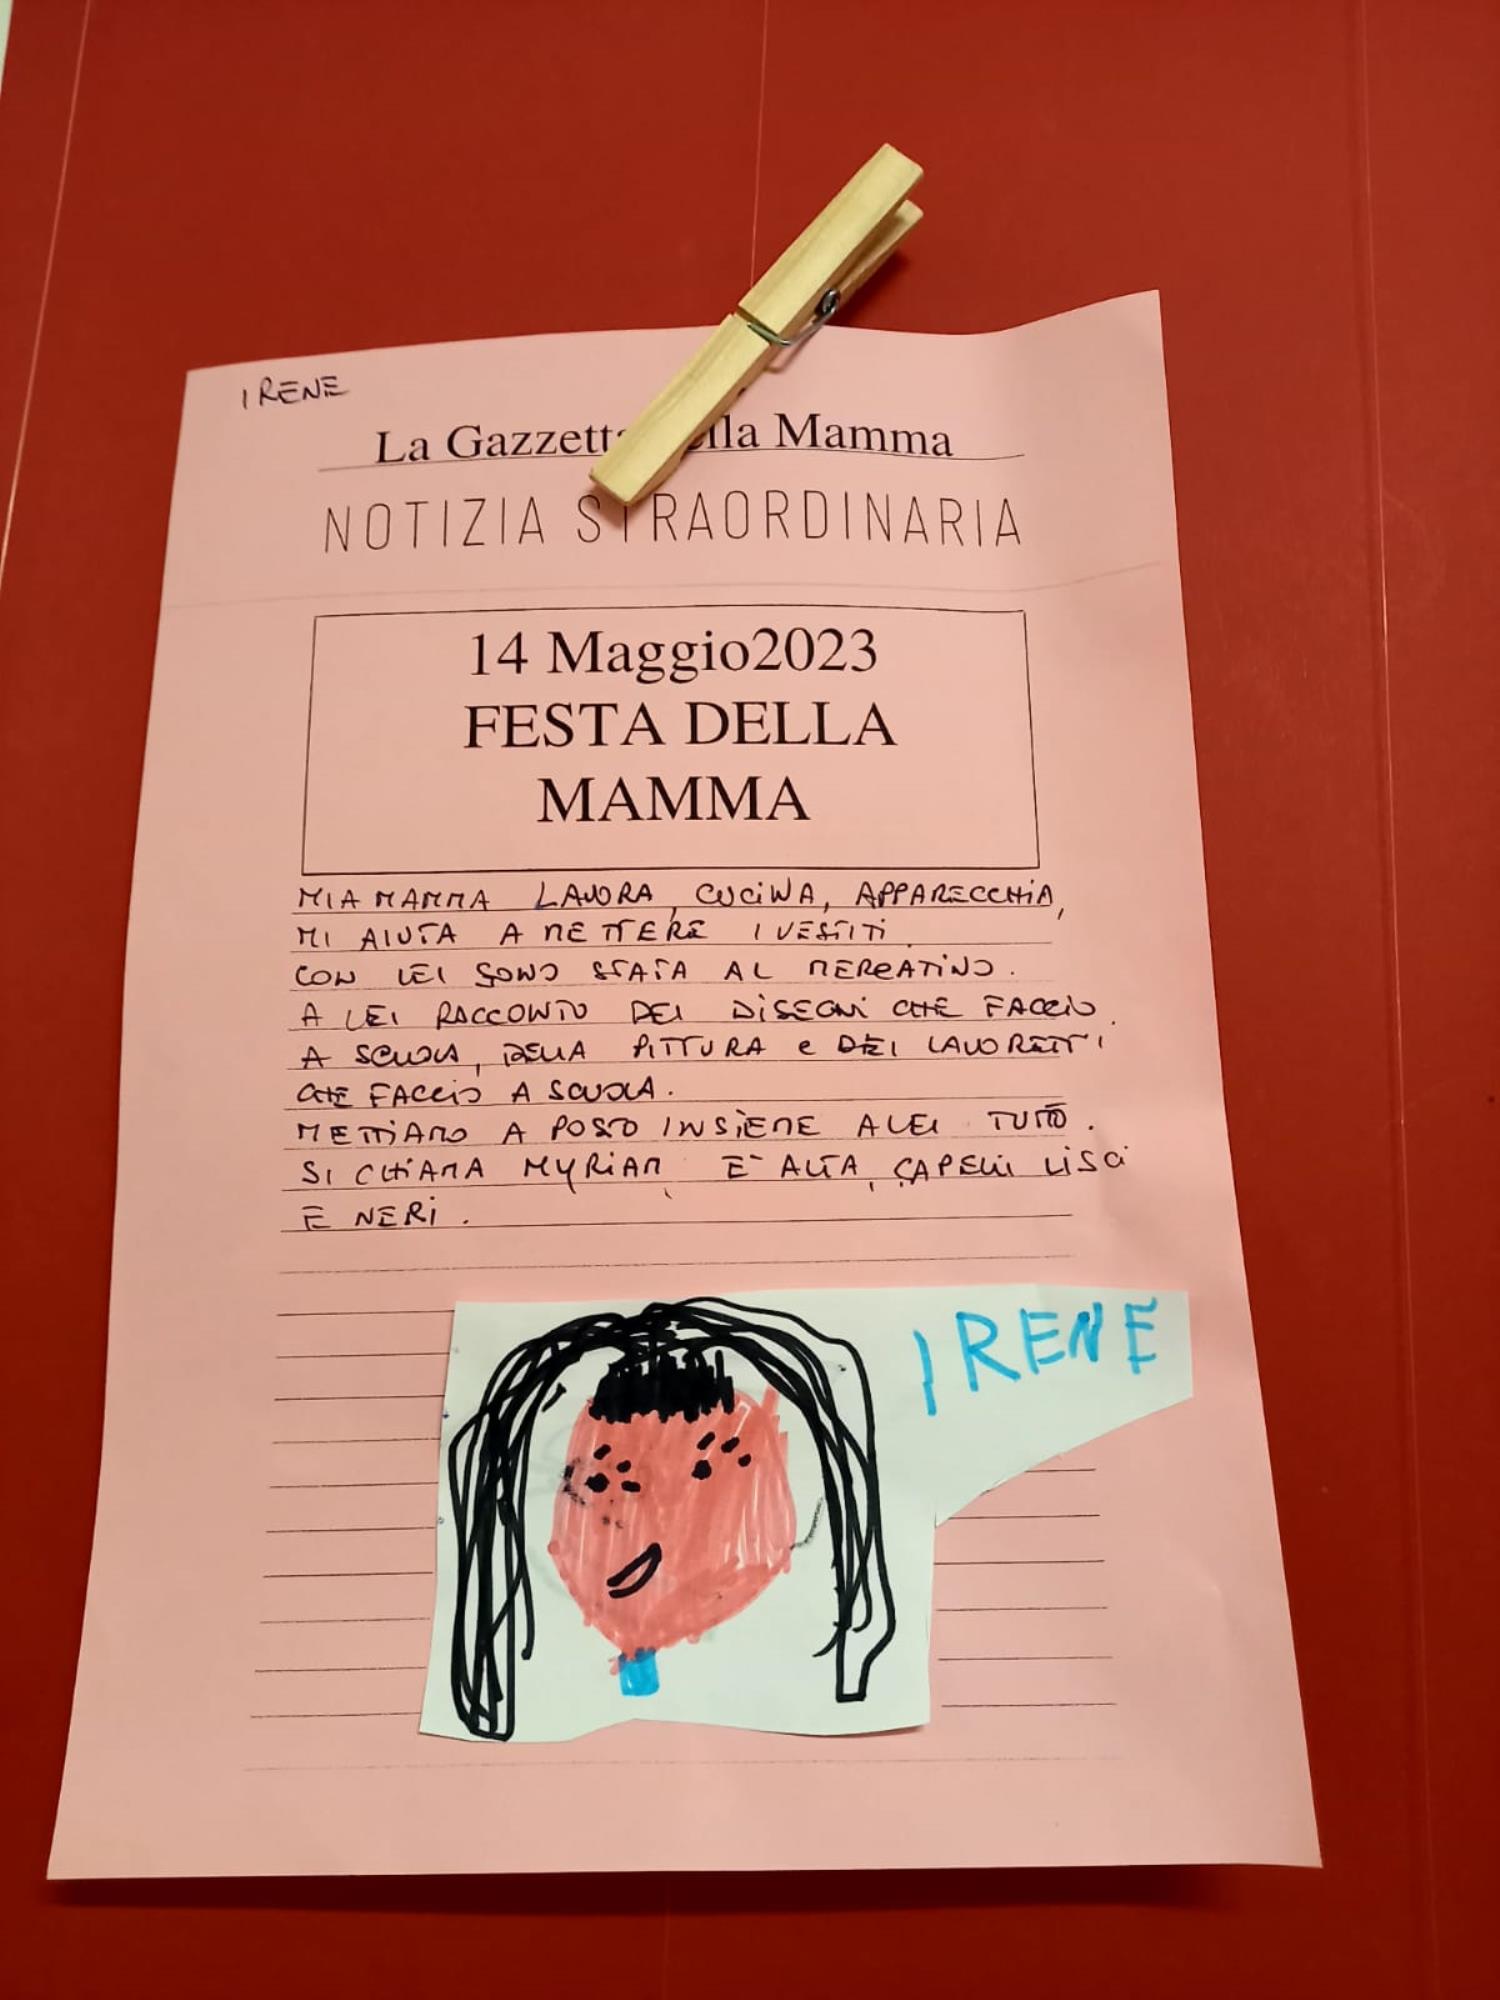 IRENE
La Gazzetta della Mamma
NOTIZIA STRAORDINARIA
14 Maggio2023
FESTA DELLA
MAMMA
MIA MAMMA LAVORA, CUCINA, APPARECCHIA,
MI AIUTA A METTERE I VESTITI
CON LEI SONO STATA AL MERCATINO.
A LEI RACCONTO DEI DISEGNI CHE FACCIO
A SCUOLA, DELLA PITTURA e DEI LAVORETTI
CHE FACCIO A SCUOLA.
METTIAMO A POSTO INSIEME A LEI TUTTO.
SI CHIAMA MYRIAM, E' ALTA, CAPELLI LISCI
E NERI.
IRENE